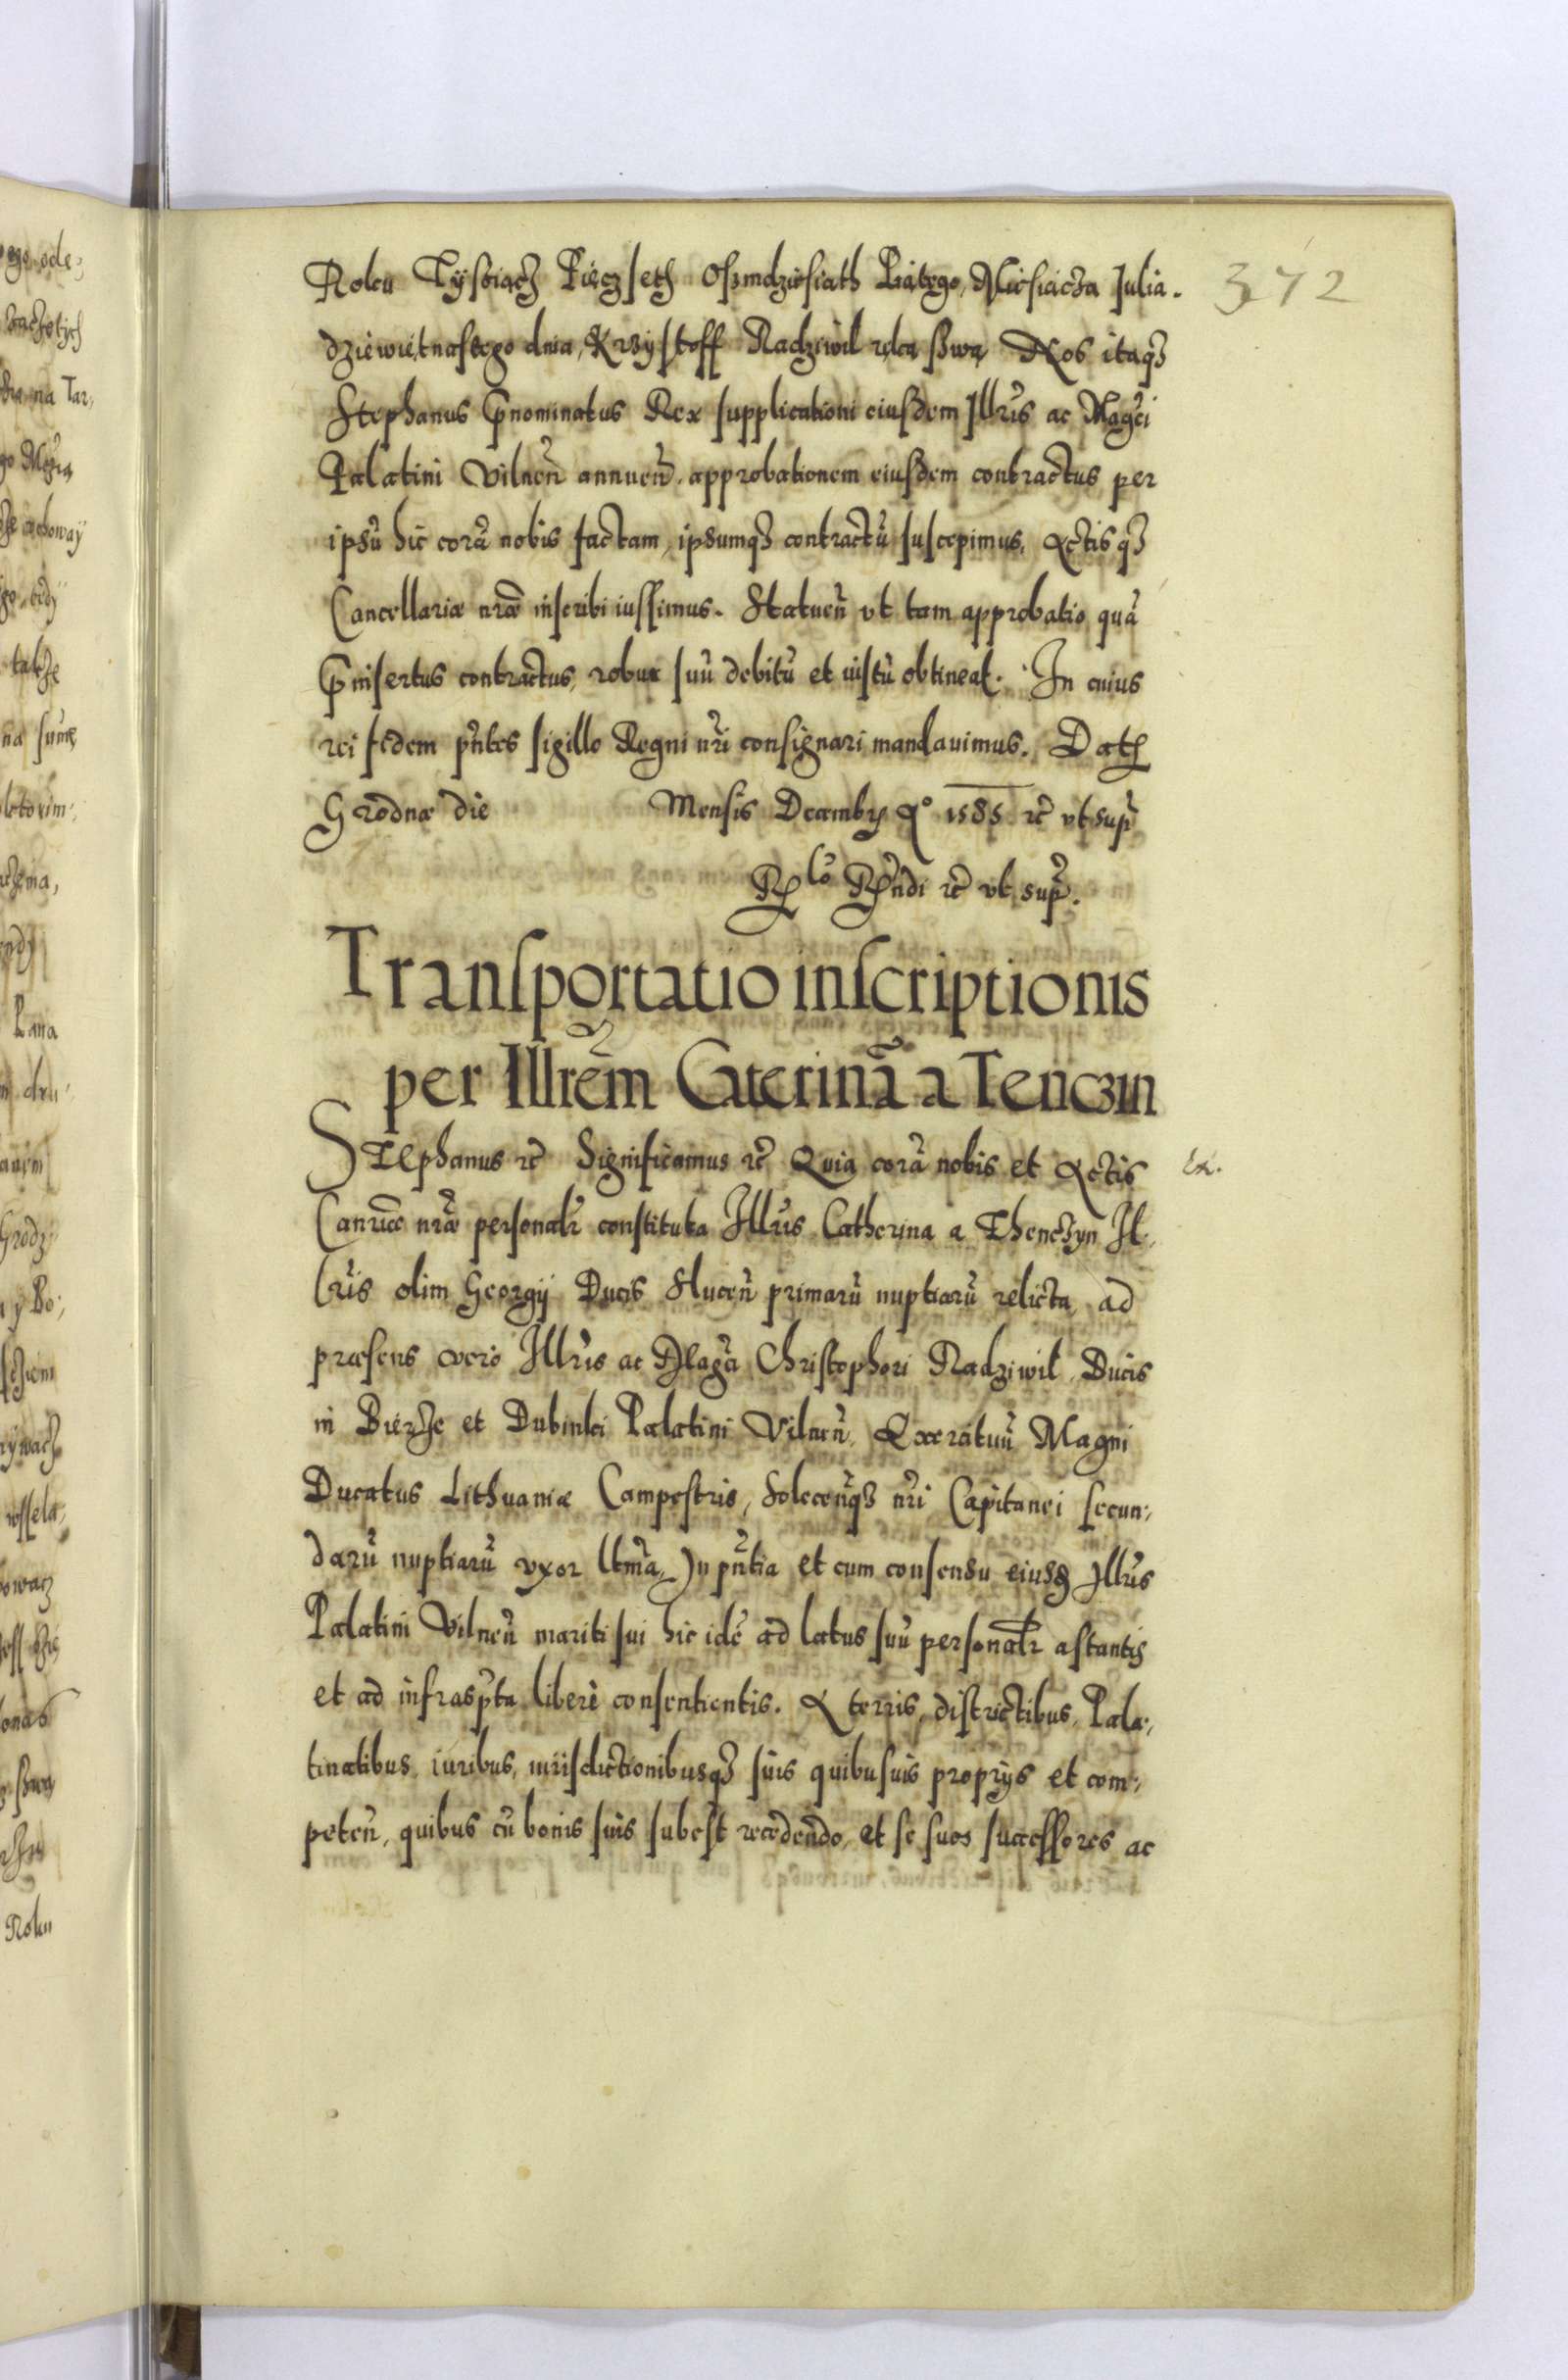 Roku Tyſiącz Pięcz ſeth Oſzmdzieſiath Piątego, Mieſiącza Julia.
372
dziewiętnaſtego dnia, Krzyſtoff Radziwil ręką ſzwą Nos itaqȝ
Stephanus pnominatus Rex ſupplicationi eiuſdem Illris ac Magci
Palatini Vilnen annuen. approbationem eiuſdem contractus per
ipsũ hic corã nobis factam, ipsumqȝ contractũ ſuſcepimus, Actisqȝ
Cancellariæ nræ inſcribi iuſſimus. Statuen vt tam approbatio quã
pinſertus contractus, robur ſuũ debitũ et iuſtũ obtineat. In cuius
rei fidem pntes ſigillo Regni nri conſignari mandauimus. Dat
Grodnæ die Menſis Decembr Aº 1585 rc vt supr
Rndi rc vt supr.
Tranſportatio inſcriptionis
per Illrem Caterinã a Tenczin
STEphanus rc Significamus rc Quia corã nobis et Actis
Ex.
Canriæ nræ personalr constituta Illris Catherina a Thenczyn Il-
lris olim Georgÿ Ducis Slucen primarũ nuptiarũ relicta, ad
præſens vero Illris ac Magci Chriſtophori Radziwil Ducis
in Bierże et Dubinki Palatini Vilnen, Exercituũ Magni
Ducatus Lithuaniæ Campeſtris, Solecenqȝ nri Capitanei ſecun-
darũ nuptiarũ vxor ltma, In pntia et cum conſenſu eiusd Illris
Palatini Vilnen mariti ſui hic idẽ ad latus ſuũ perſonalr aſtantis
et ad infraſpta liberè conſentientis. A terris, diſtrictibus, Pala-
tinatibus, iuribus, iuriſdictionibusqȝ ſuis quibuſuis proprÿs et com-
peten, quibus cũ bonis ſuis ſubeſt recedendo, et ſe ſuos ſucceſſores ac